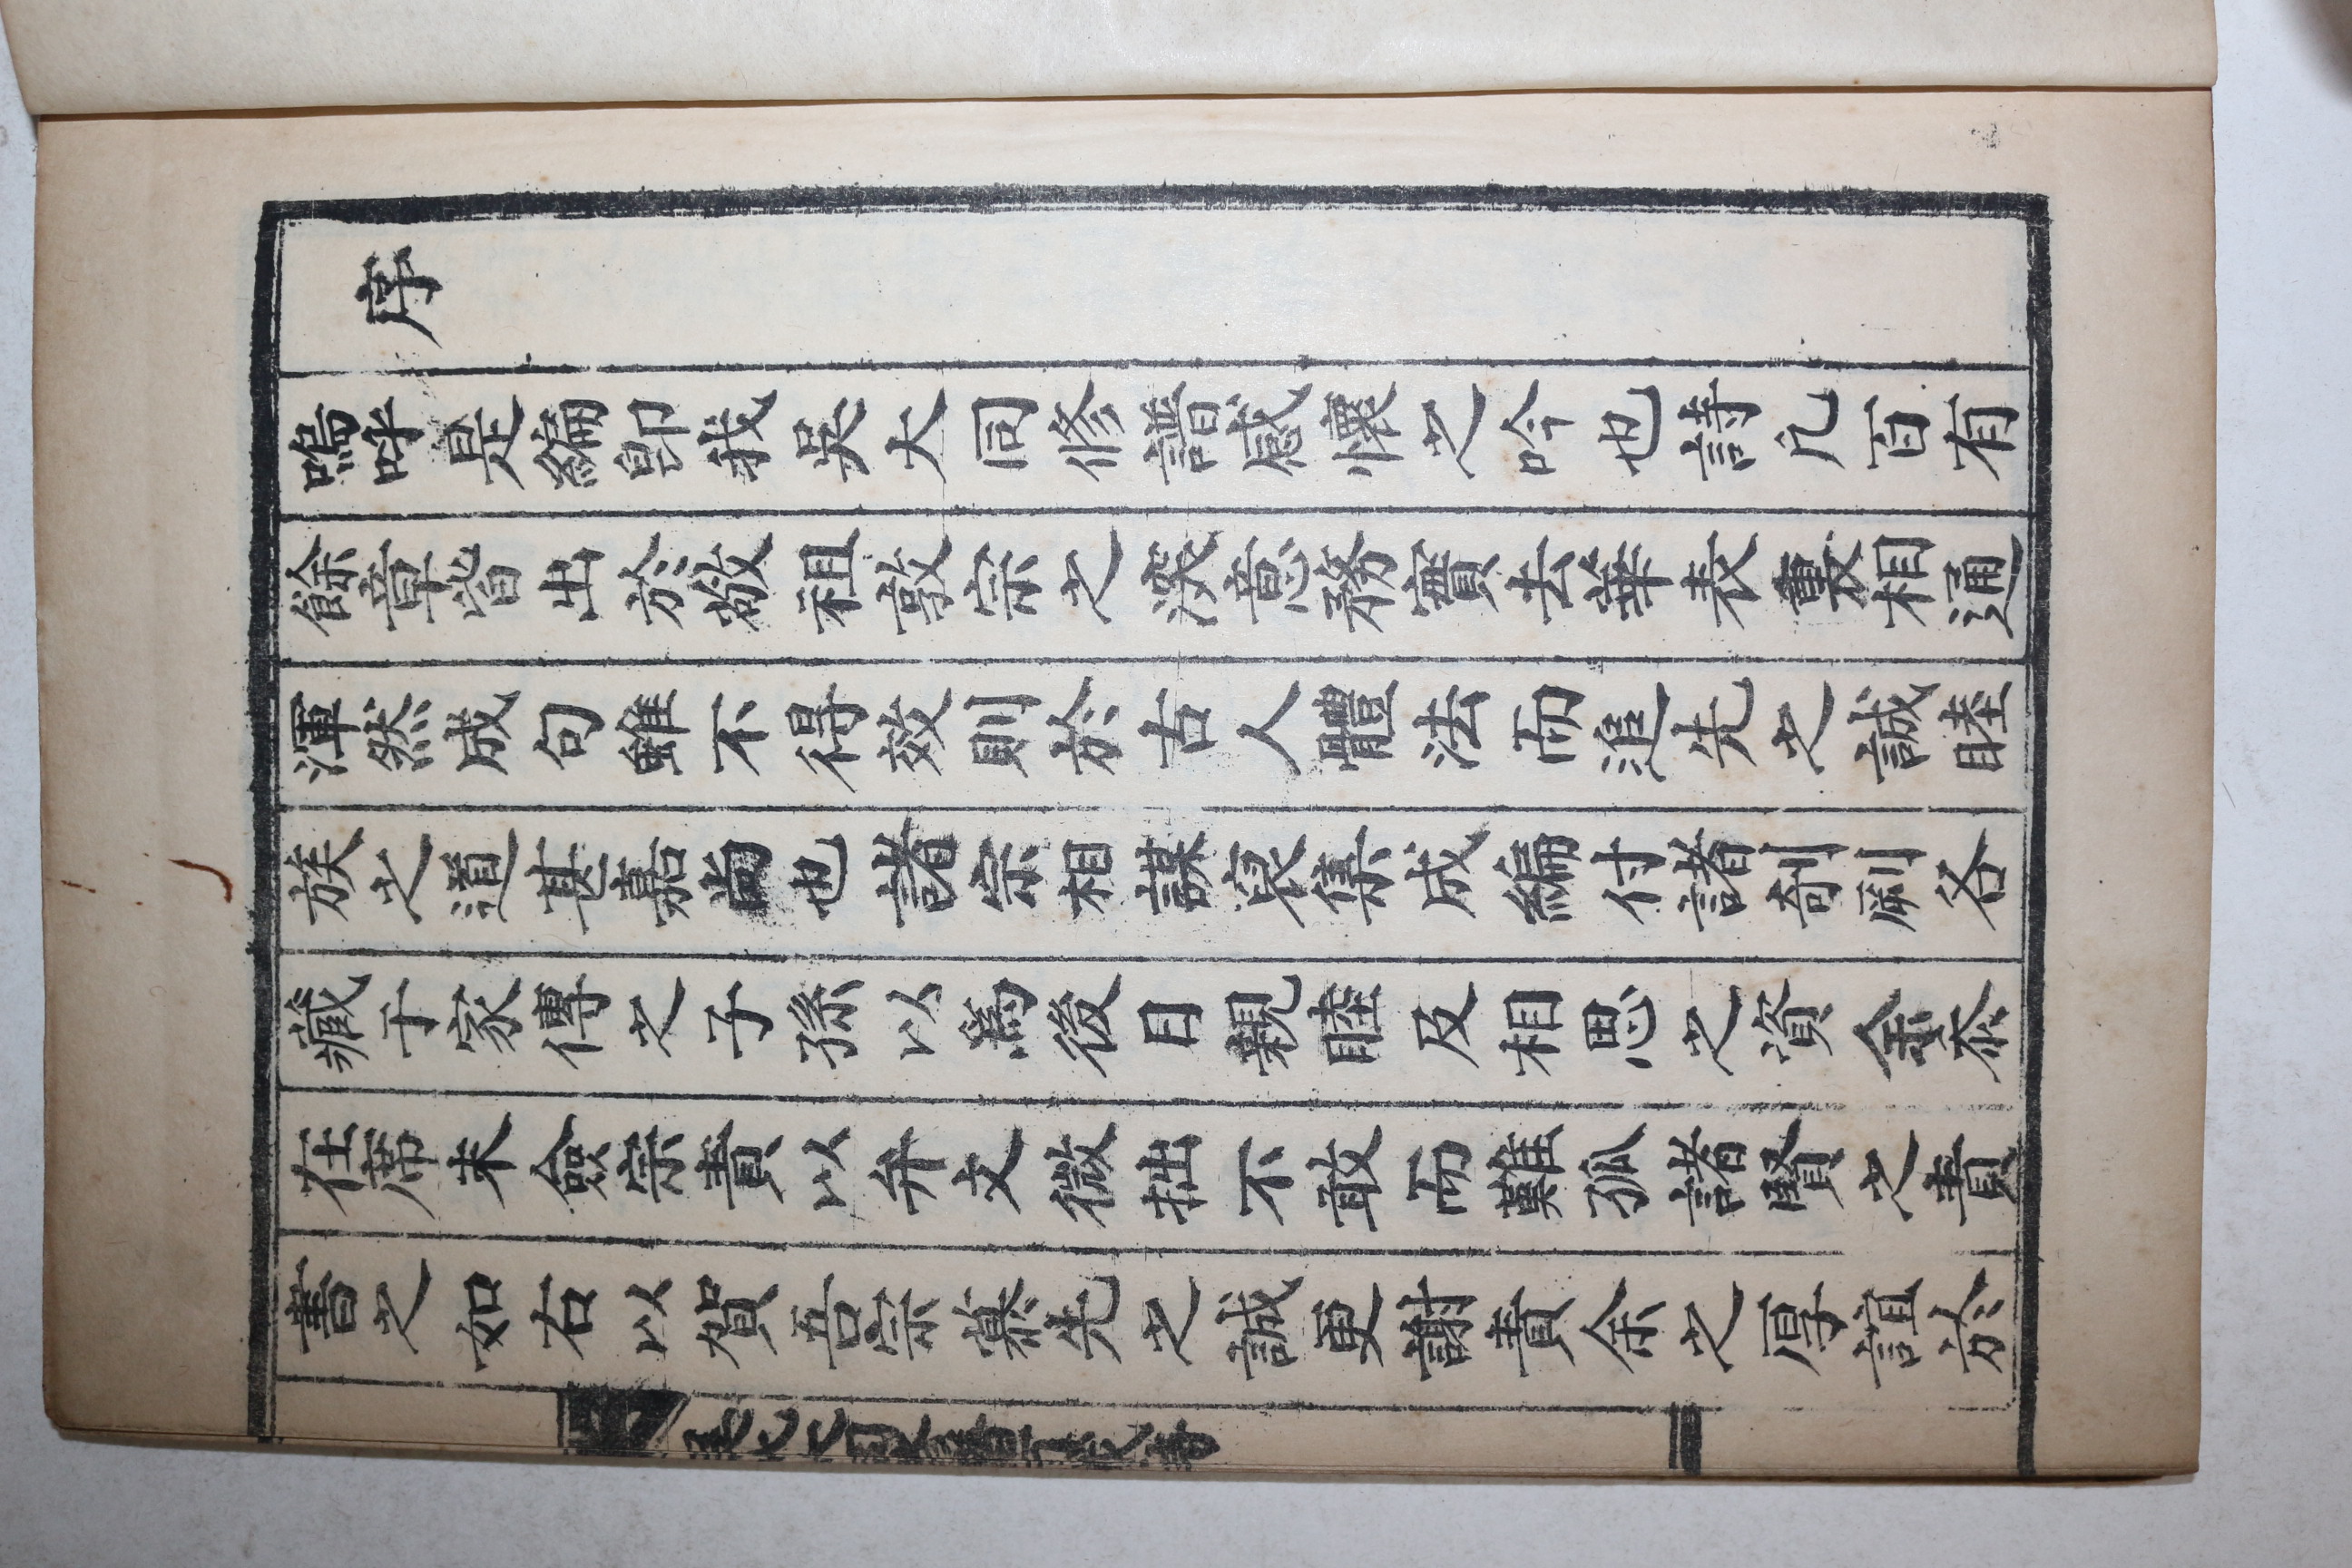 序
嗚呼是編卽我吳大同修譜感懷之吟也詩凡百有
餘章皆出於敬祖敦宗之深意務實去華表裏相通
渾然成句雖不得效則於古人體法而追先之誠睦
族之道甚嘉尚也諸宗相謀裒集成編付諸剞劂各
藏于家傳之子孫以爲後日親睦及相思之資余忝
在席末僉宗責以弁文微拙不敢而難孤諸賢之責
書之如右以賀吾宗慕先之誠更謝責余之厚誼於